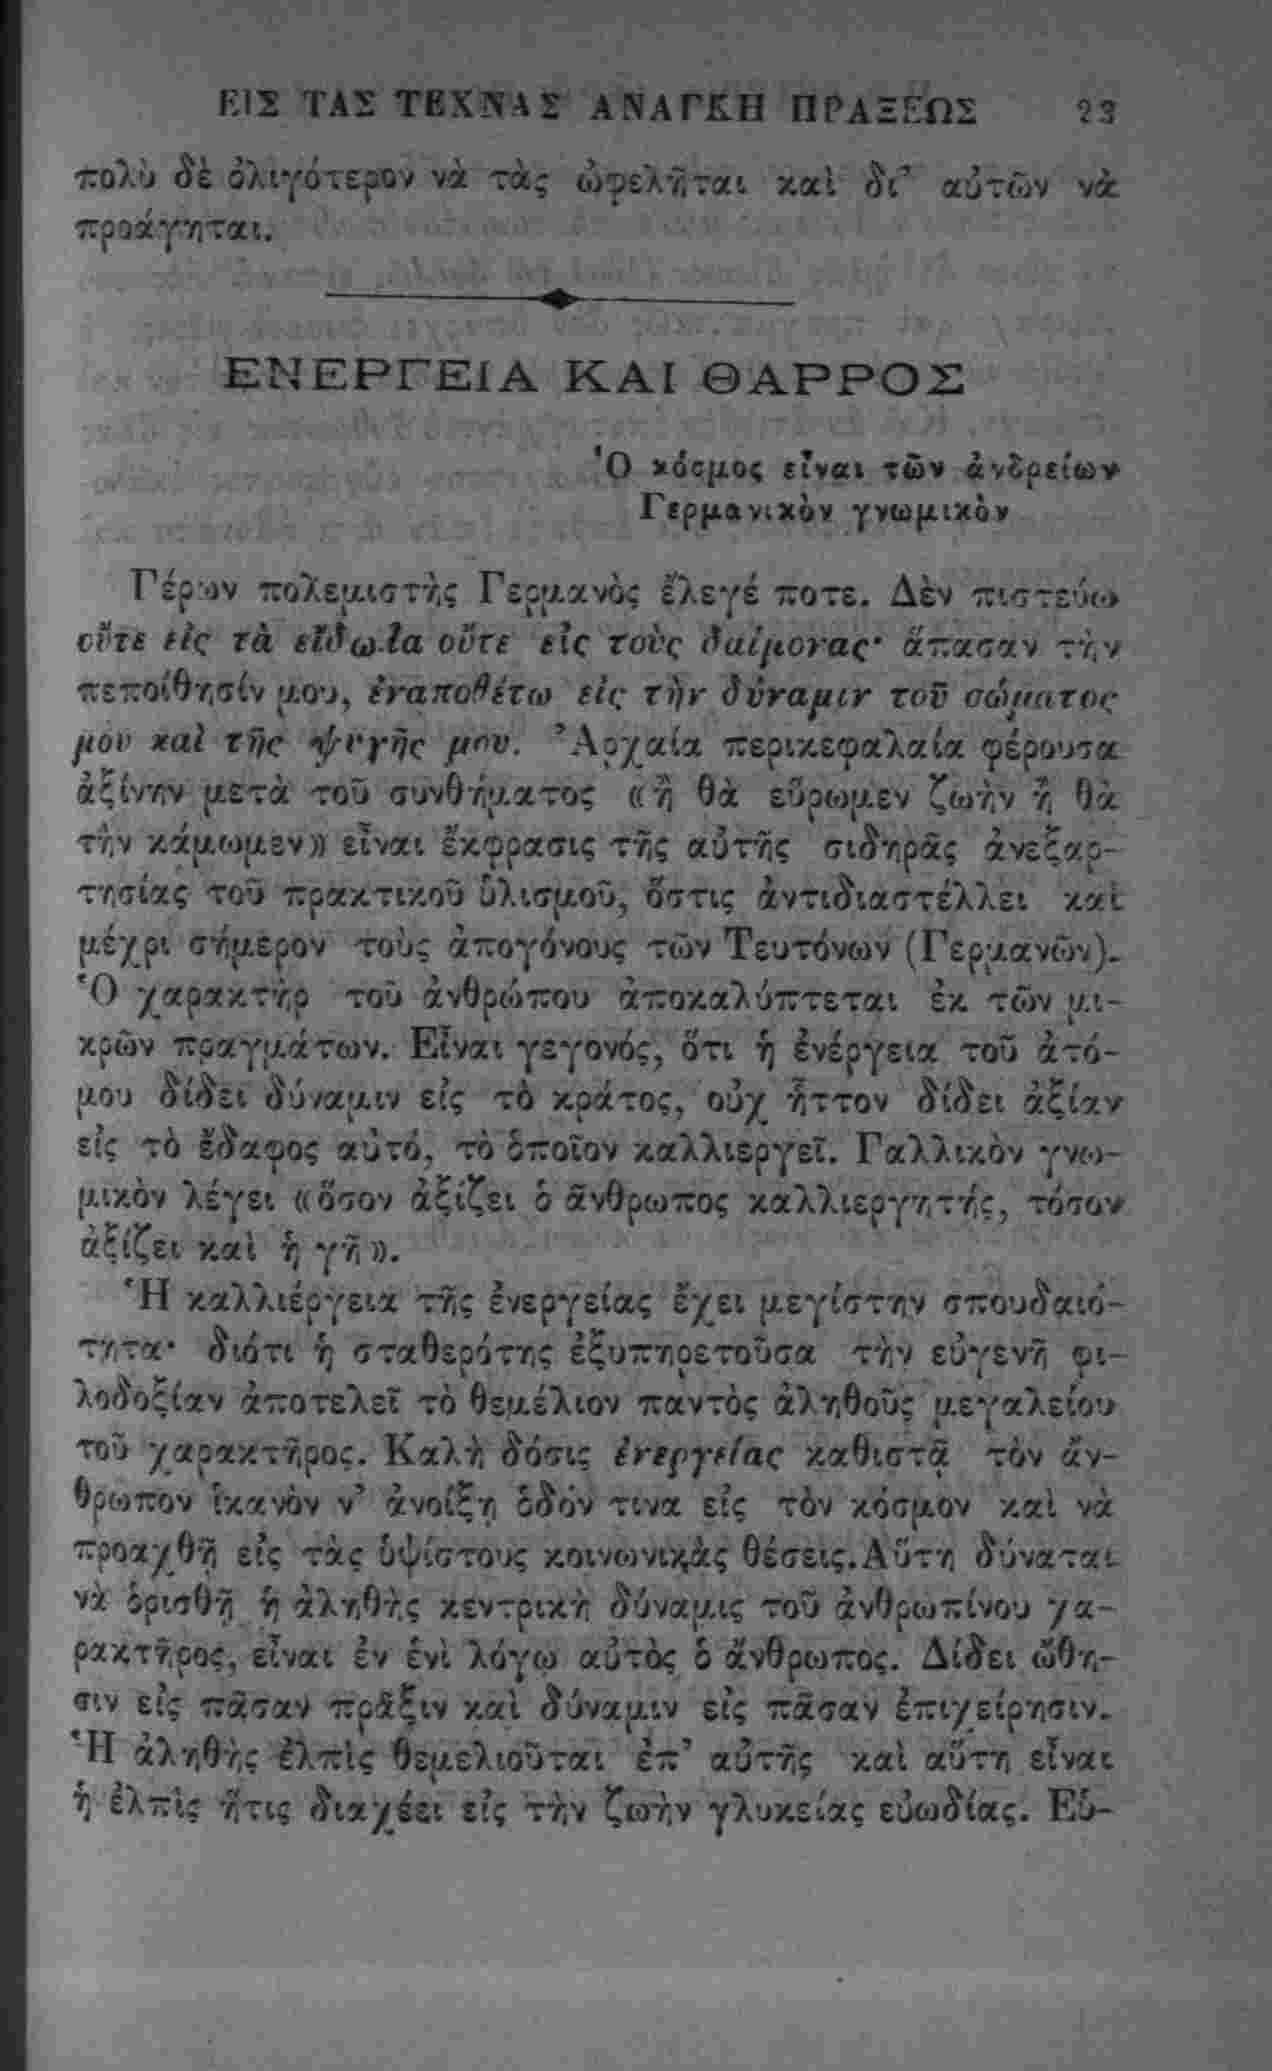 ΕΙΣ ΤΑΣ ΤΕΧΝΑΣ ΑΝΑΓΚΗ ΠΡΑΞΕΩΣ 23
πολὺ δὲ ὀλιγότερον νὰ τὰς ὠφελῆται καὶ δι’ αὐτῶν νὰ
προάγηται.
ΕΝΕΡΓΕΙΑ ΚΑΙ ΘΑΡΡΟΣ
Ὁ κόσμος εἶναι τῶν ἀνδρείων
Γερμανικὸν γνωμικὸν
Γέρων πολεμιστὴς Γερμανὸς ἔλεγέ ποτε. Δὲν πιστεύω
οὔτε εἰς τὰ εἴδωλα οὔτε εἰς τοὺς δαίμονας· ἅπασαν τὴν
πεποίθησίν μου, ἐναποθέτω εἰς τὴν δύναμιν τοῦ σώματος
μου καὶ τῆς ψυχῆς μου. Ἀρχαία περικεφαλαία φέρουσα
ἀξίνην μετὰ τοῦ συνθήματος «ἢ θὰ εὕρωμεν ζωὴν ἢ θὰ
τὴν κάμωμεν» εἶναι ἔκφρασις τῆς αὐτῆς σιδηρᾶς ἀνεξαρ-
τησίας τοῦ πρακτικοῦ ὑλισμοῦ, ὅστις ἀντιδιαστέλλει καὶ
μέχρι σήμερον τοὺς ἀπογόνους τῶν Τευτόνων (Γερμανῶν).
Ὁ χαρακτὴρ τοῦ ἀνθρώπου ἀποκαλύπτεται ἐκ τῶν μι-
κρῶν πραγμάτων. Εἶναι γεγονός, ὅτι ἡ ἐνέργεια τοῦ ἀτό-
μου δίδει δύναμιν εἰς τὸ κράτος, οὐχ ἧττον δίδει ἀξίαν
εἰς τὸ ἔδαφος αὐτό, τὸ ὁποῖον καλλιεργεῖ. Γαλλικὸν γνω-
μικὸν λέγει «ὅσον ἀξίζει ὁ ἄνθρωπος καλλιεργητής, τόσον
ἀξίζει καὶ ἡ γῆ».
Ἡ καλλιέργεια τῆς ἐνεργείας ἔχει μεγίστην σπουδαιό-
τητα· διότι ἡ σταθερότης ἐξυπηρετοῦσα τὴν εὐγενῆ φι-
λοδοξίαν ἀποτελεῖ τὸ θεμέλιον παντὸς ἀληθοῦς μεγαλείου
τοῦ χαρακτῆρος. Καλὴ δόσις ἐνεργείας καθιστᾷ τὸν ἄν-
θρωπον ἱκανὸν ν’ ἀνοίξῃ ὁδόν τινα εἰς τὸν κόσμον καὶ νὰ
προαχθῇ εἰς τὰς ὑψίστους κοινωνικὰς θέσεις. Αὕτη δύναται
νὰ ὁρισθῇ ἡ ἀληθὴς κεντρικὴ δύναμις τοῦ ἀνθρωπίνου χα-
ρακτῆρος, εἶναι ἐν ἑνὶ λόγῳ αὐτὸς ὁ ἄνθρωπος. Δίδει ὤθη-
σιν εἰς πᾶσαν πρᾶξιν καὶ δύναμιν εἰς πᾶσαν ἐπιχείρησιν.
Ἡ ἀληθὴς ἐλπὶς θεμελιοῦται ἐπ’ αὐτῆς καὶ αὕτη εἶναι
ἡ ἐλπὶς ἥτις διαχέει εἰς τὴν ζωὴν γλυκείας εὐωδίας. Εὑ-